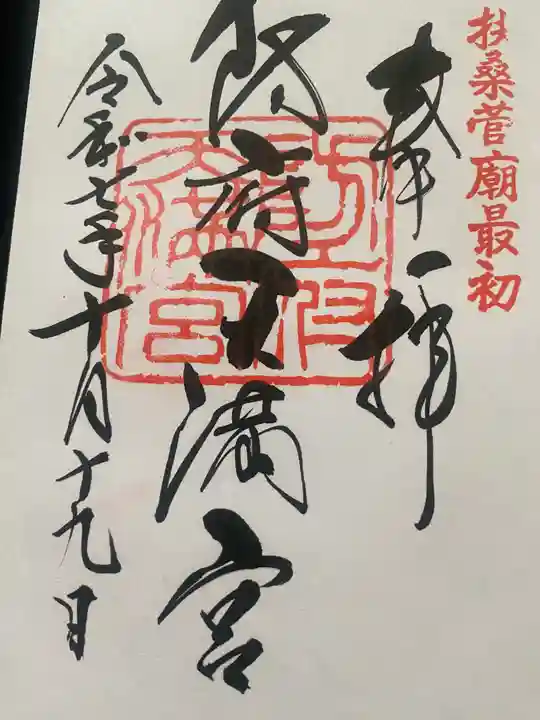 扶桑菅廟最初
奉拝
防府天満宮
令和七年十月十九日